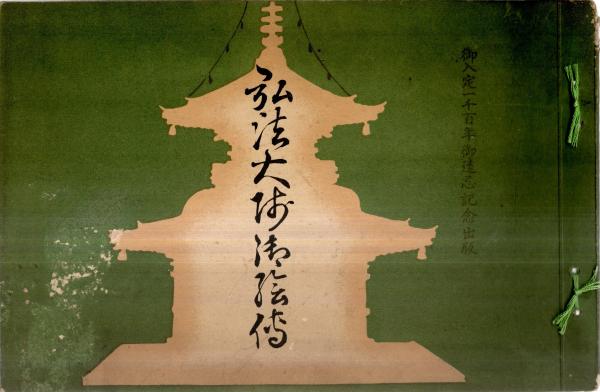 御入定一千百年御遠忌記念出版
弘法大师御絵傳